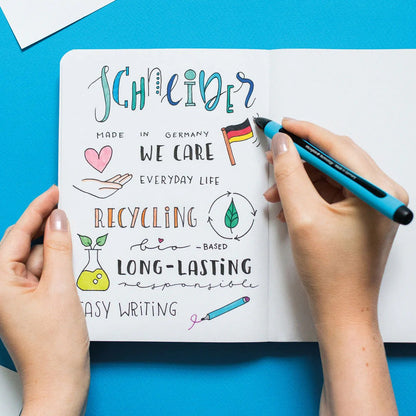 Schneider
MADE IN GERMANY
WE CARE
EVERYDAY LIFE
RECYCLING
bio -BASED
LONG-LASTING
responsible
EASY WRITING